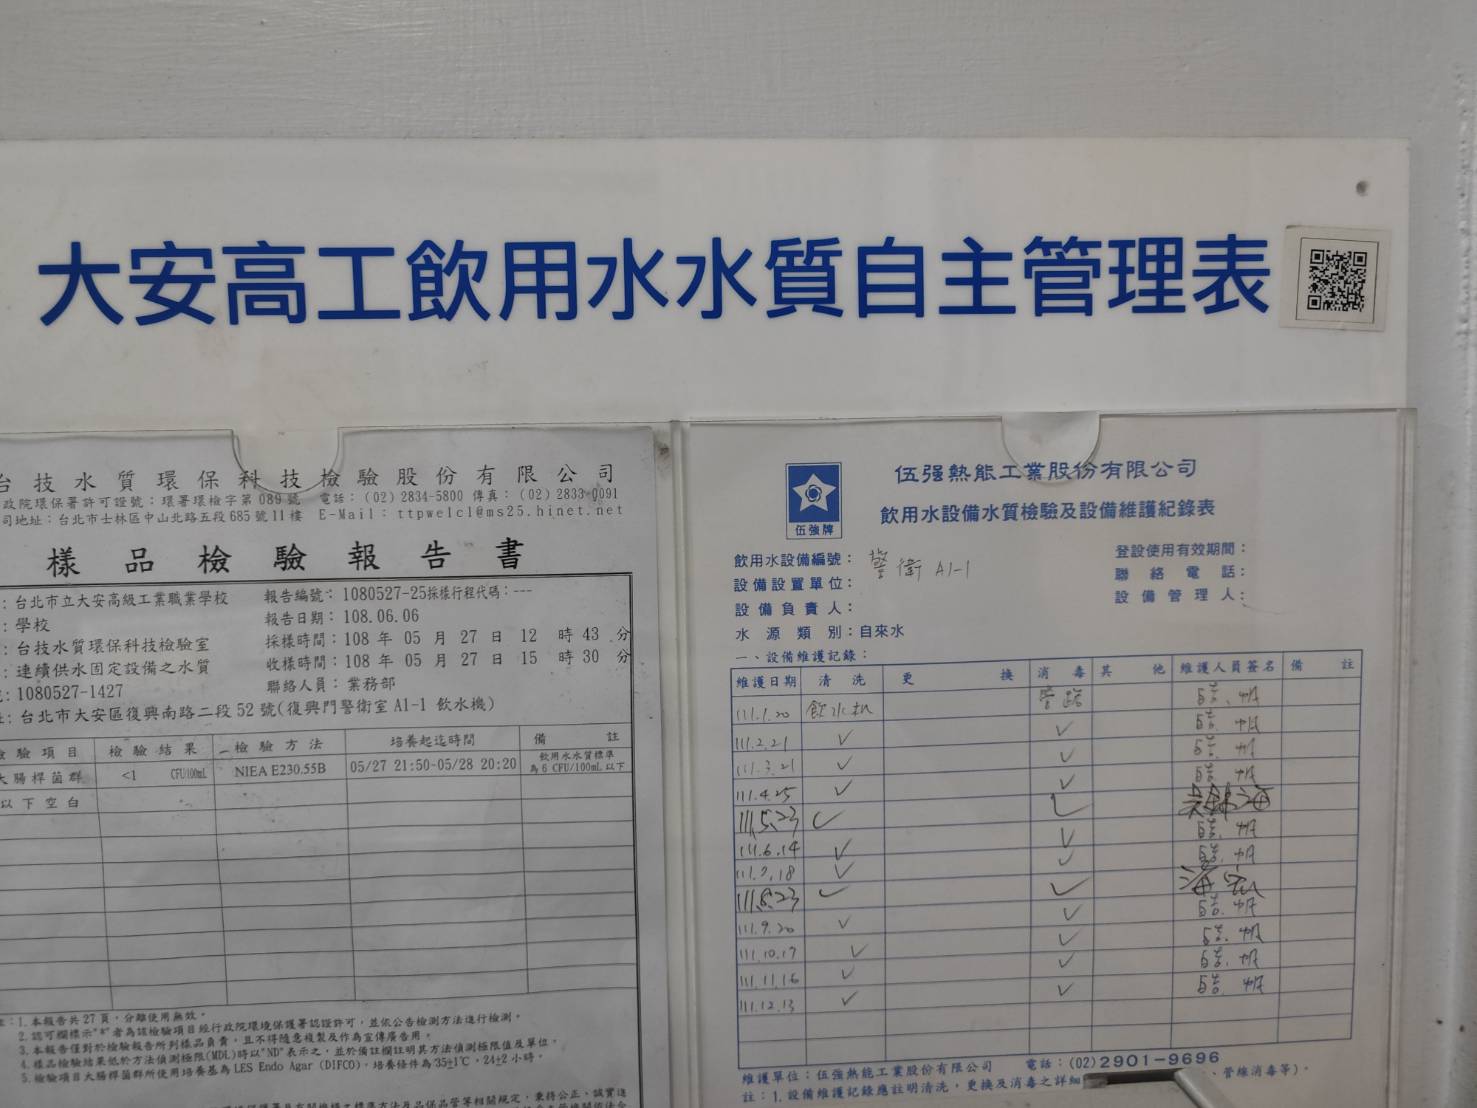 大安高工飲用水水質自主管理表
台技水質環保科技檢驗股份有限公司
政院環保署許可證號：環署環檢字第089號 電話：(02)2834-5800 傳真：(02)2833-0091
司地址：台北市士林區中山北路五段685號11樓 E-Mail：ttpwelcl@ms25.hinet.net
樣品檢驗報告書
：台北市立大安高級工業職業學校 報告編號：1080527-25採樣行程代碼：---
：學校 報告日期：108.06.06
：台技水質環保科技檢驗室 採樣時間：108 年 05 月 27 日 12 時 43 分
：連續供水固定設備之水質 收樣時間：108 年 05 月 27 日 15 時 30 分
：1080527-1427 聯絡人員：業務部
：台北市大安區復興南路二段52號(復興門警衛室A1-1 飲水機)
檢驗項目 檢驗結果 檢驗方法 培養起迄時間 備註
大腸桿菌群 <1 CFU/100mL NIEA E230.55B 05/27 21:50-05/28 20:20 飲用水水質標準
為6 CFU/100mL以下
以下空白
：1.本報告共27頁，分離使用無效。
2.認可欄標示"*"者為該檢驗項目經行政院環境保護署認證許可，並依公告檢測方法進行檢測。
3.本報告僅對於檢驗報告所列樣品負責，且不得隨意複製及作為宣傳廣告用。
4.樣品檢驗結果低於方法偵測極限(MDL)時以"ND"表示之，並於備註欄註明其方法偵測極限值及單位。
5.檢驗項目大腸桿菌群所使用培養基為LES Endo Agar (DIFCO)，培養條件為35±1℃，24±2小時。
伍強牌
伍强熱能工業股份有限公司
飲用水設備水質檢驗及設備維護紀錄表
飲用水設備編號：警衛 A1-1 登設使用有效期間：
設備設置單位： 聯絡電話：
設備負責人： 設備管理人：
水源類別：自來水
一、設備維護記錄：
維護日期 清洗 更換 消毒 其他 維護人員簽名 備註
111.1.20 飲水機 管路
111.2.21 ✓ ✓
111.3.21 ✓ ✓
111.4.25 ✓ ✓
111.5.23 ✓ ✓
111.6.14 ✓ ✓
111.7.18 ✓ ✓
111.8.23 ✓ ✓
111.9.20 ✓ ✓
111.10.17 ✓ ✓
111.11.16 ✓ ✓
111.12.13 ✓ ✓
維護單位：伍強熱能工業股份有限公司 電話：(02)2901-9696
註：1.設備維護記錄應註明清洗，更換及消毒之詳細 、管線消毒等)。